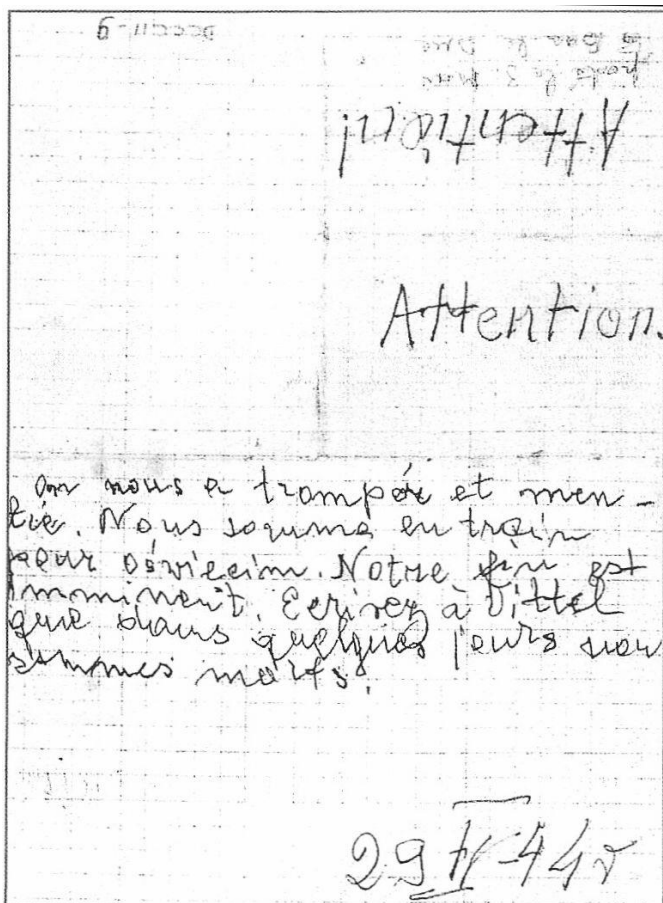 Attention!
Attention.
on nous a trompér et men-
tie. Nous somme en train
pour oświecim. Notre fin est
imminent. Ecrivez à Vittel
que dans quelques jours nou
sommes morts.
29 IV-44 r